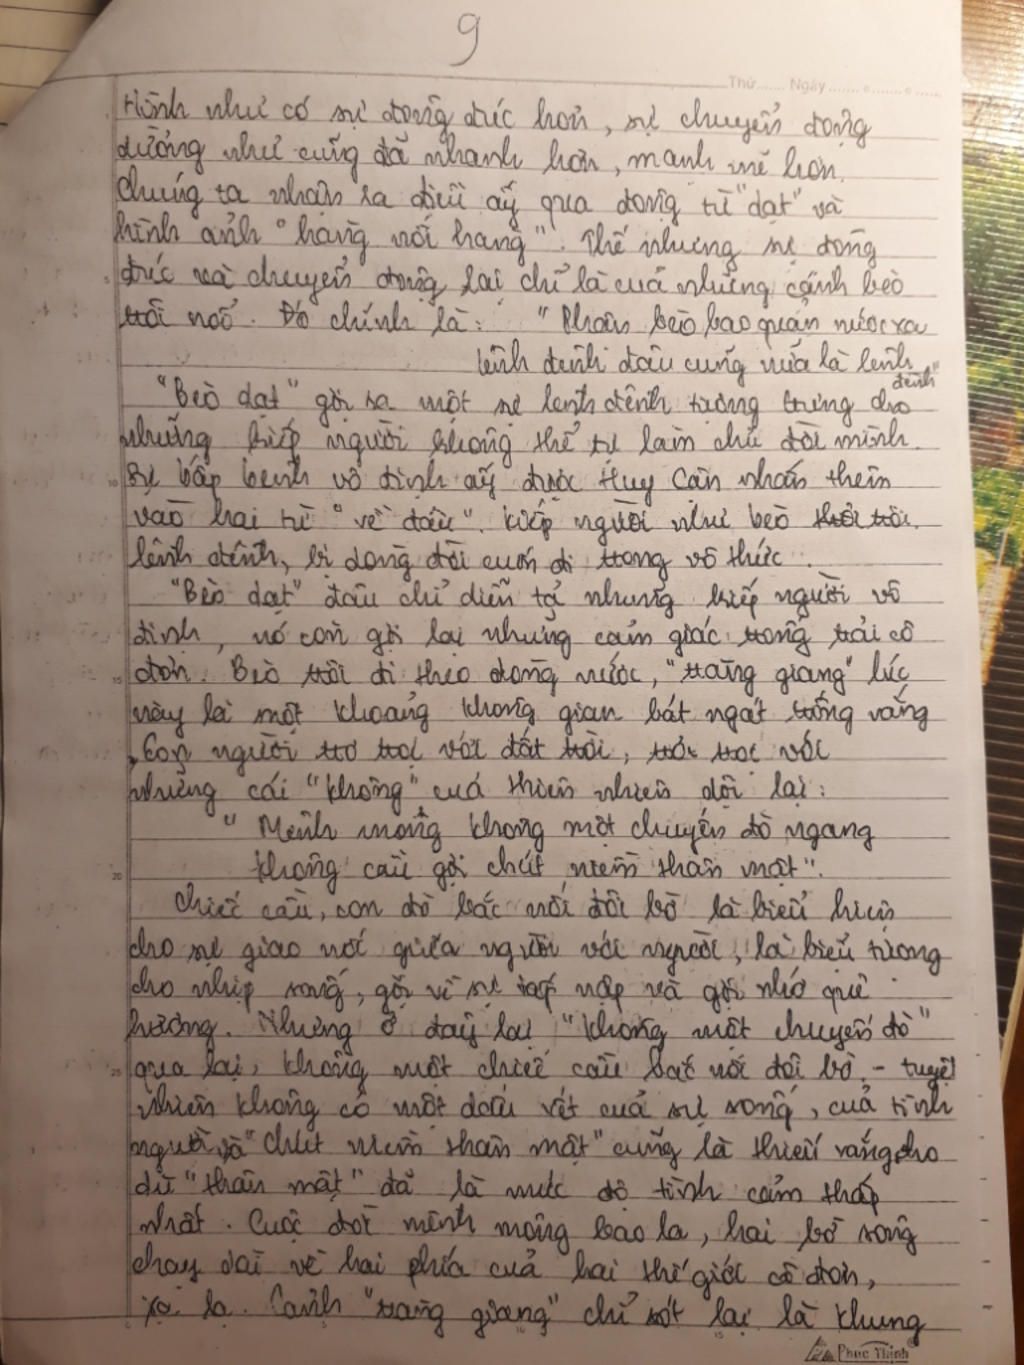 9
Thứ ....... Ngày ....... o ....... o .....
Hình như có sự đông đúc hơn, sự chuyển động
dường như cũng đã nhanh hơn, mạnh mẽ hơn.
Chúng ta nhận ra điều ấy qua động từ "dạt" và
hình ảnh "hàng nối hàng". Thế nhưng sự đông
đúc và chuyển động lại chỉ là của những cánh bèo
trôi nổi. Đó chính là: "Phận bèo bao quản nước xa
lênh đênh đâu cũng nữa là lênh
đênh"
"Bèo dạt" gợi ra một sự lênh đênh tượng trưng cho
những kiếp người không thể tự làm chủ đời mình.
Sự bấp bênh vô định ấy được Huy Cận nhấn thêm
vào hai từ "về đâu". Kiếp người như bèo trôi
lênh đênh, bị dòng đời cuốn đi trong vô thức.
"Bèo dạt" đâu chỉ diễn tả những kiếp người vô
định, nó còn gợi lại những cảm giác trống trải cô
đơn. Bèo trôi đi theo dòng nước, "tràng giang" lúc
này là một khoảng không gian bát ngát trống vắng
. Con người trơ trọi với đất trời, trơ trọi với
những cái "không" của thiên nhiên dội lại:
" Mênh mông không một chuyến đò ngang
Không cầu gợi chút niềm thân mật".
Chiếc cầu, con đò bắc nối đôi bờ là biểu hiện
cho sự giao nối giữa người với người, là biểu tượng
cho nhịp sống, gợi về sự tấp nập và gợi nhớ quê
hương. Nhưng ở đây lại "không một chuyến đò"
qua lại, không một chiếc cầu bắc nối đôi bờ - tuyệt
nhiên không có một dấu vết của sự sống, của tình
người và "chút niềm thân mật" cũng là thiếu vắng cho
dù "thân mật" đã là mức độ tình cảm thấp
nhất. Cuộc đời mênh mông bao la, hai bờ sông
chạy dài về hai phía của hai thế giới cô đơn,
xa lạ. Cảnh "tràng giang" chỉ sót lại là khung
Phúc Thịnh